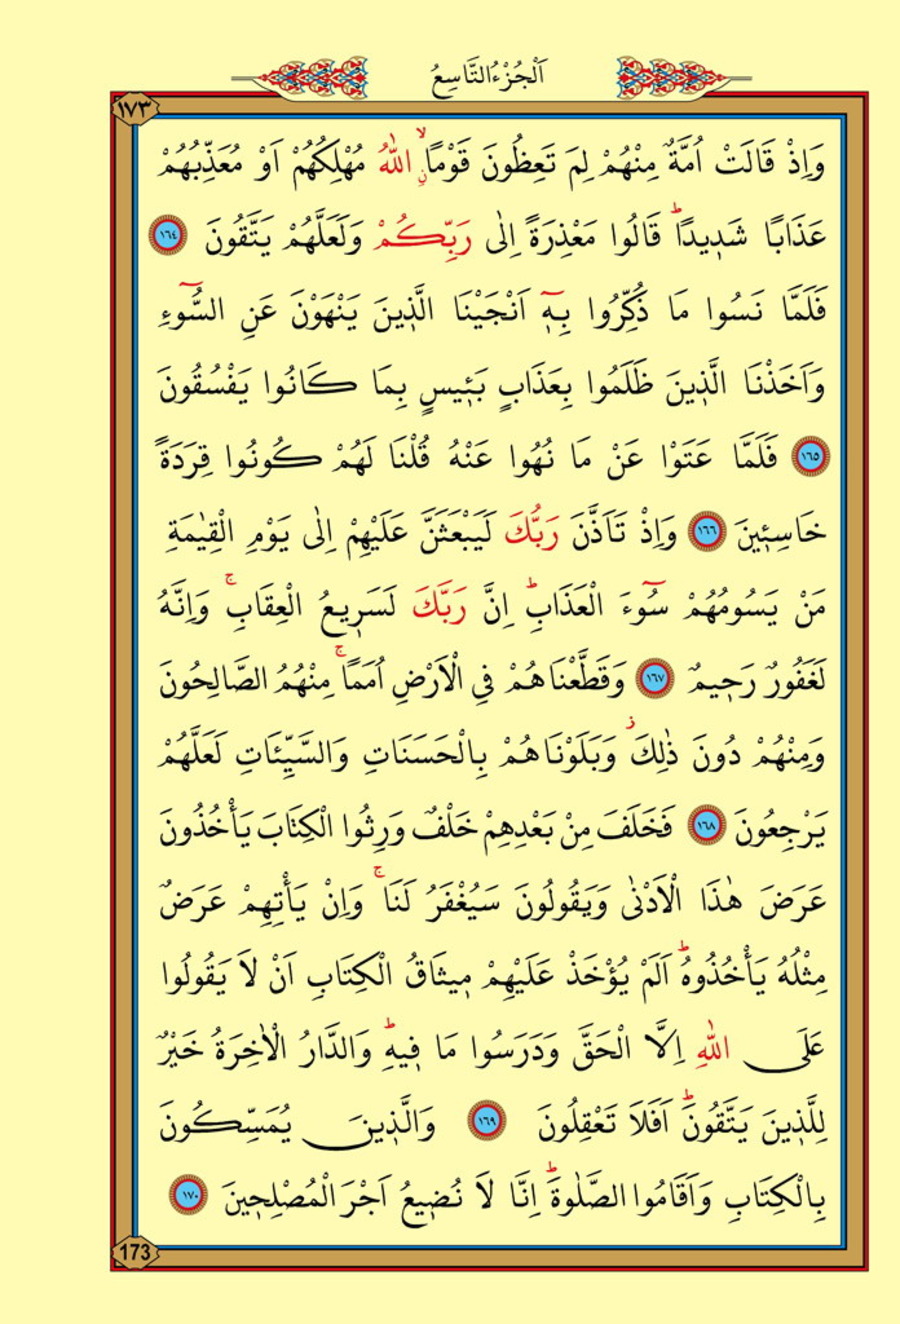 اَلْجُزْءُ التَّاسِعُ
١٧٣
وَاِذْ قَالَتْ اُمَّةٌ مِنْهُمْ لِمَ تَعِظُونَ قَوْمًاۙ ۨاللّٰهُ مُهْلِكُهُمْ اَوْ مُعَذِّبُهُمْ
عَذَابًا شَد۪يدًاۜ قَالُوا مَعْذِرَةً اِلٰى رَبِّكُمْ وَلَعَلَّهُمْ يَتَّقُونَ ١٦٤
فَلَمَّا نَسُوا مَا ذُكِّرُوا بِه۪ٓ اَنْجَيْنَا الَّذ۪ينَ يَنْهَوْنَ عَنِ السُّٓوءِ
وَاَخَذْنَا الَّذ۪ينَ ظَلَمُوا بِعَذَابٍ بَـ۪ٔيسٍ بِمَا كَانُوا يَفْسُقُونَ
١٦٥ فَلَمَّا عَتَوْا عَنْ مَا نُهُوا عَنْهُ قُلْنَا لَهُمْ كُونُوا قِرَدَةً
خَاسِـ۪ٔينَ ١٦٦ وَاِذْ تَاَذَّنَ رَبُّكَ لَيَبْعَثَنَّ عَلَيْهِمْ اِلٰى يَوْمِ الْقِيٰمَةِ
مَنْ يَسُومُهُمْ سُٓوءَ الْعَذَابِۜ اِنَّ رَبَّكَ لَسَر۪يعُ الْعِقَابِۚ وَاِنَّهُ
لَغَفُورٌ رَح۪يمٌ ١٦٧ وَقَطَّعْنَاهُمْ فِي الْاَرْضِ اُمَمًاۚ مِنْهُمُ الصَّالِحُونَ
وَمِنْهُمْ دُونَ ذٰلِكَۘ وَبَلَوْنَاهُمْ بِالْحَسَنَاتِ وَالسَّيِّئَاتِ لَعَلَّهُمْ
يَرْجِعُونَ ١٦٨ فَخَلَفَ مِنْ بَعْدِهِمْ خَلْفٌ وَرِثُوا الْكِتَابَ يَأْخُذُونَ
عَرَضَ هٰذَا الْاَدْنٰى وَيَقُولُونَ سَيُغْفَرُ لَنَاۚ وَاِنْ يَأْتِهِمْ عَرَضٌ
مِثْلُهُ يَأْخُذُوهُۜ اَلَمْ يُؤْخَذْ عَلَيْهِمْ م۪يثَاقُ الْكِتَابِ اَنْ لَا يَقُولُوا
عَلَى اللّٰهِ اِلَّا الْحَقَّ وَدَرَسُوا مَا ف۪يهِۜ وَالدَّارُ الْاٰخِرَةُ خَيْرٌ
لِلَّذ۪ينَ يَتَّقُونَۜ اَفَلَا تَعْقِلُونَ ١٦٩ وَالَّذ۪ينَ يُمَسِّكُونَ
بِالْكِتَابِ وَاَقَامُوا الصَّلٰوةَۜ اِنَّا لَا نُض۪يعُ اَجْرَ الْمُصْلِح۪ينَ ١٧٠
173